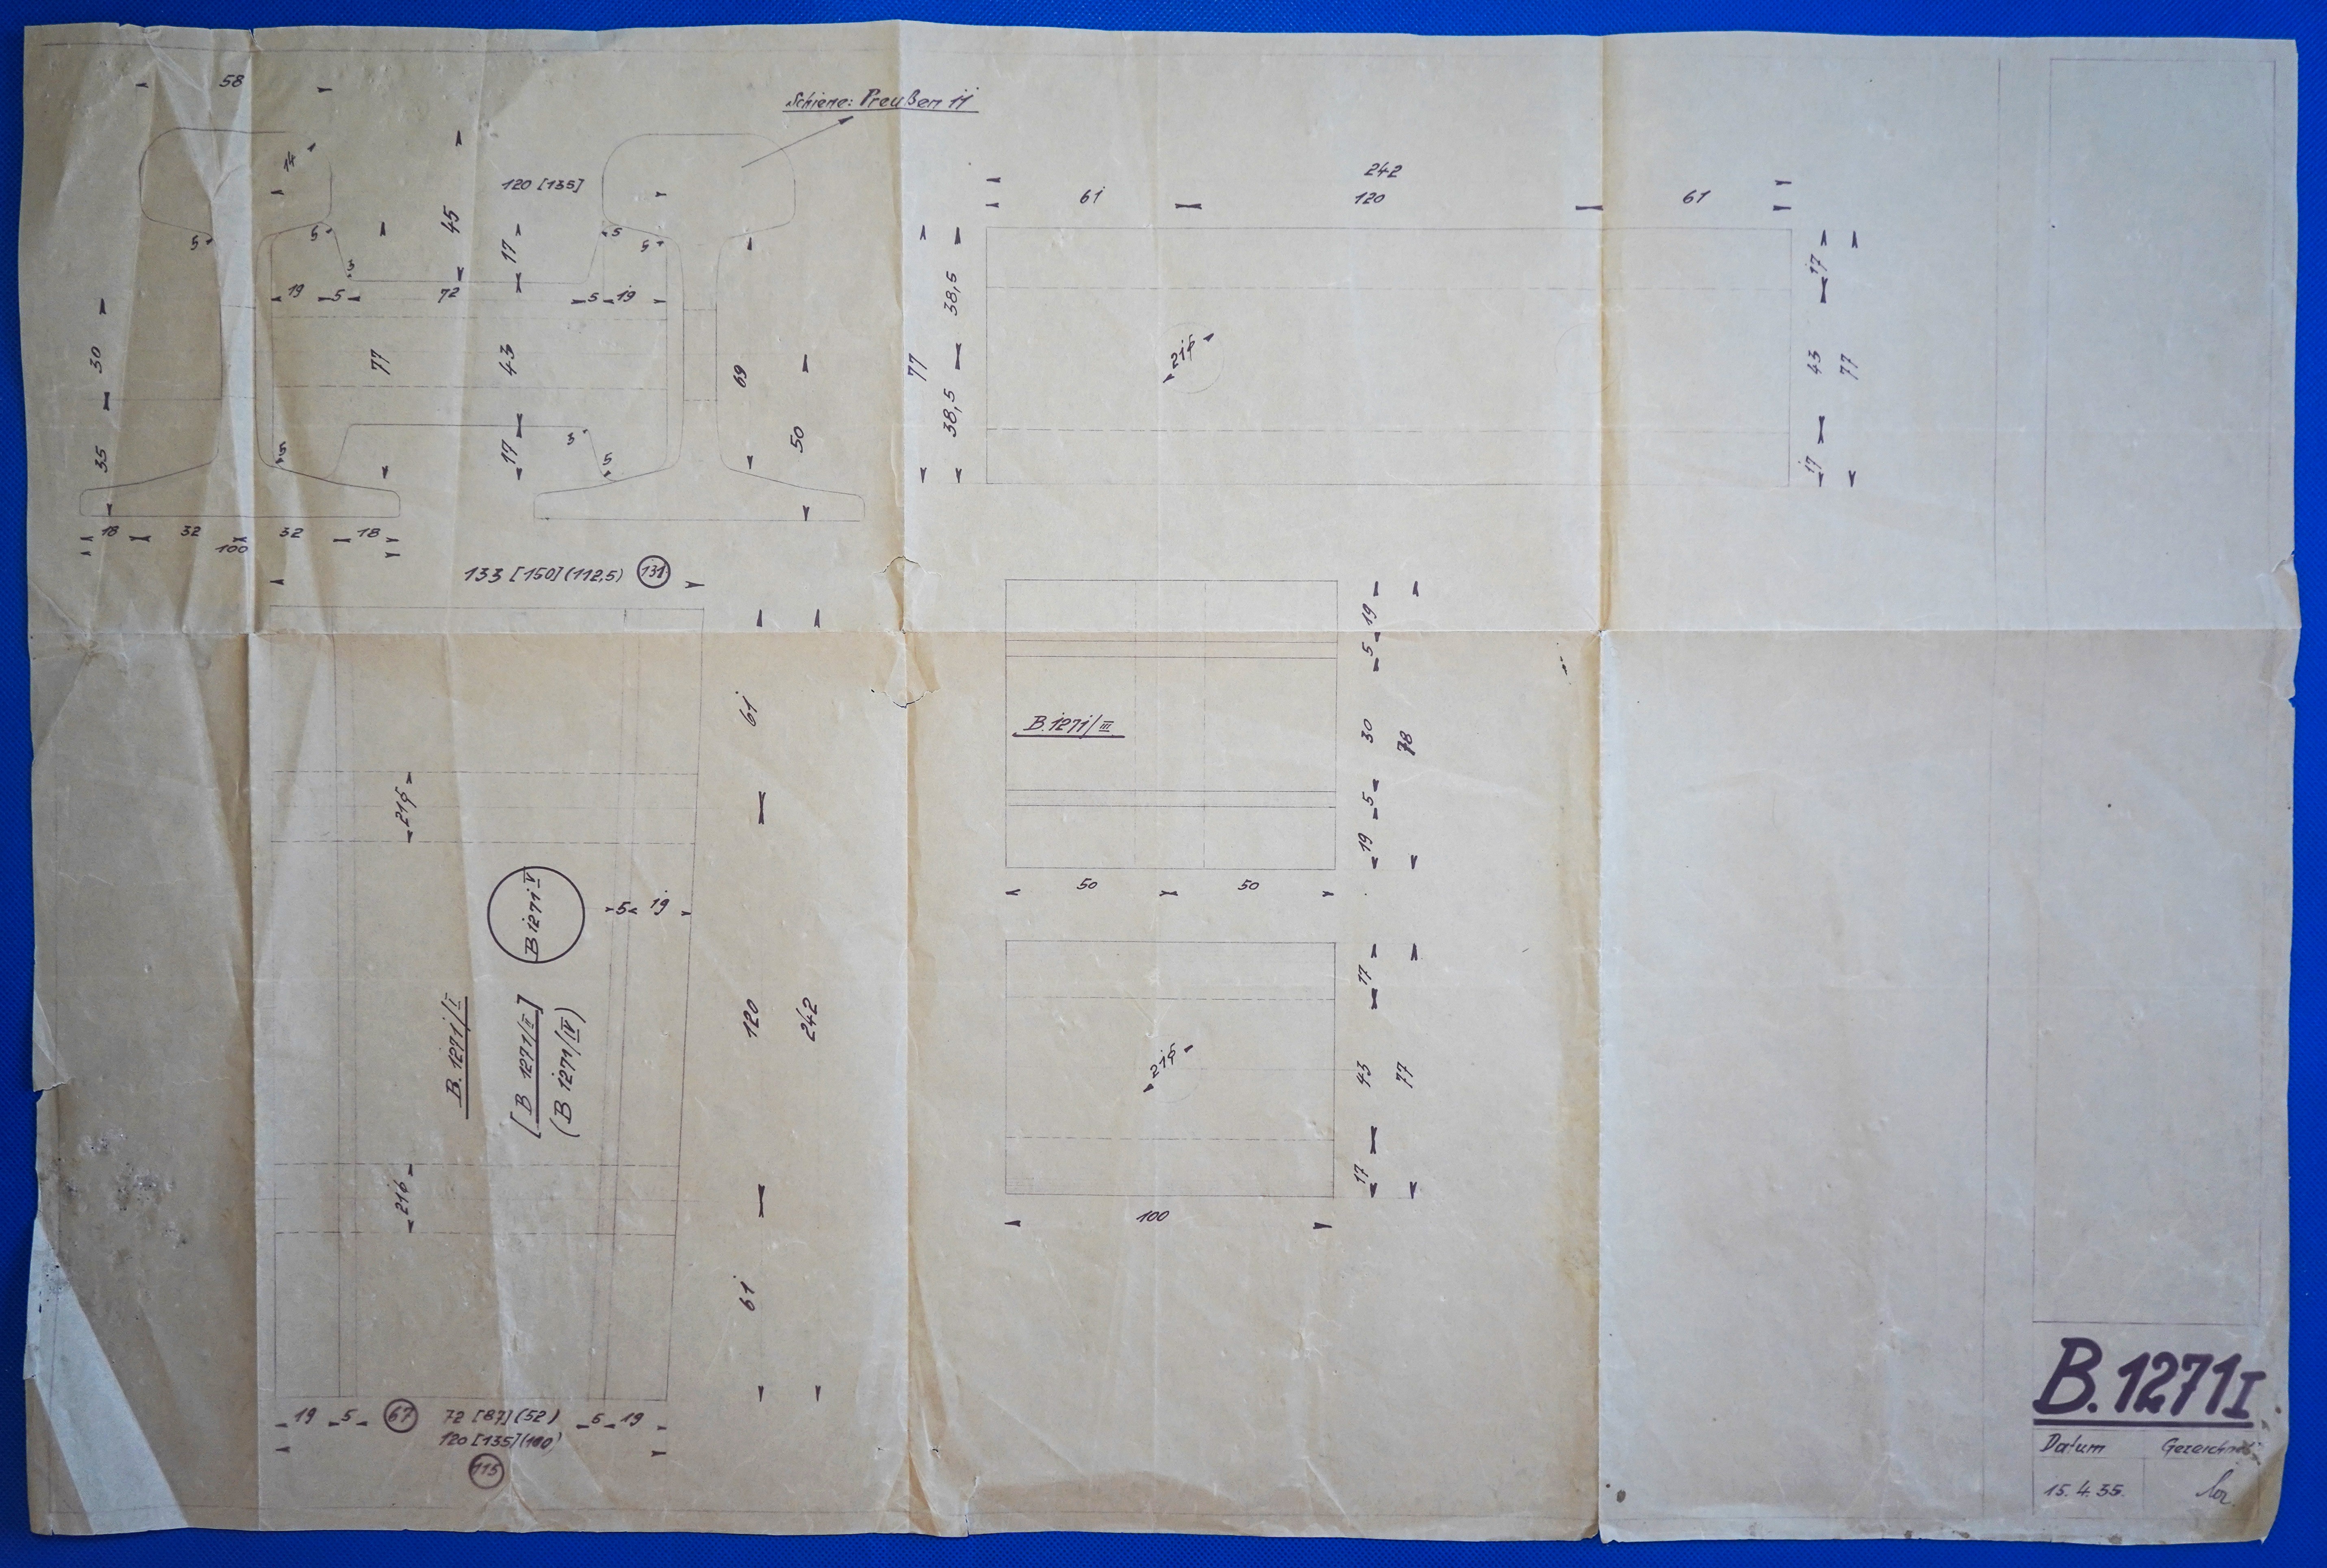 58
Schiene: Preußen 11
14
120 [135]
45
17
5
5
5
5
3
19
5
72
5
19
30
77
43
69
35
17
3
5
5
50
18
32
32
18
100
242
61
120
61
77
38,5
38,5
21⌀
17
43
77
17
133 [150] (112,5) (131)
61
21⌀
B 1271 V
5
19
B. 1271/I
[B 1271/II]
(B 1271/IV)
120
242
21⌀
61
19
5
67
72 [87] (52)
5
19
120 [135] (100)
115
B. 1271/III
19
5
30
78
5
19
50
50
17
21⌀
43
77
17
100
B. 1271 I
Datum
Gezeichnet
15. 4. 35.